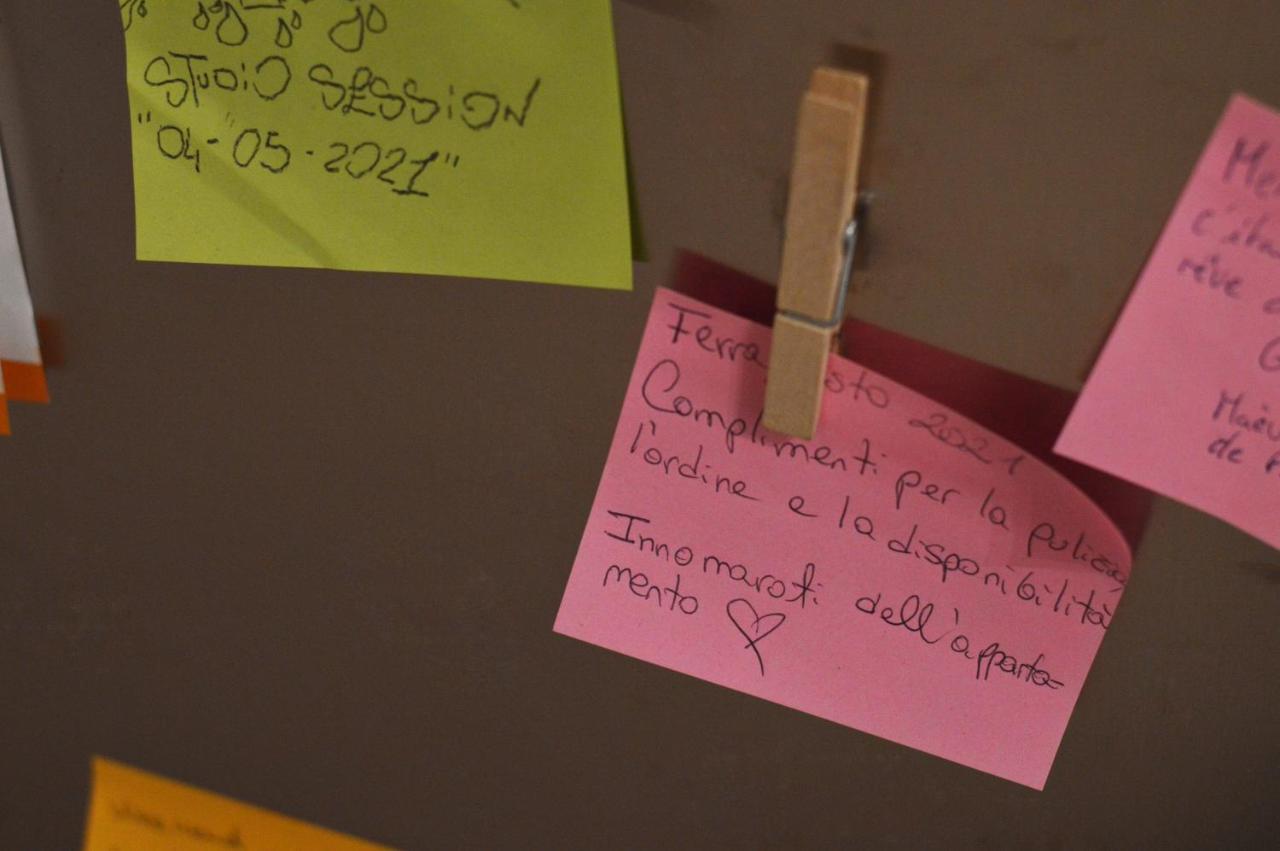 STUDIO SESSION
"04-"05-2021"
Ferra sto 2021
Complimenti per la pulizia,
l'ordine e la disponibilità
Innomarati dell'apparta-
mento
rêve
de